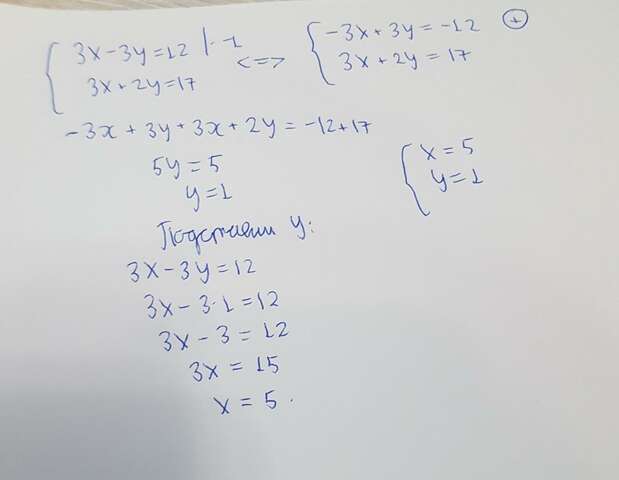 3x-3y=12 |·-1 <=> -3x+3y=-12 (+)
3x+2y=17 3x+2y=17
-3x+3y+3x+2y=-12+17
5y=5
y=1
x=5
y=1
Подставим y:
3x-3y=12
3x-3·1=12
3x-3=12
3x=15
x=5.